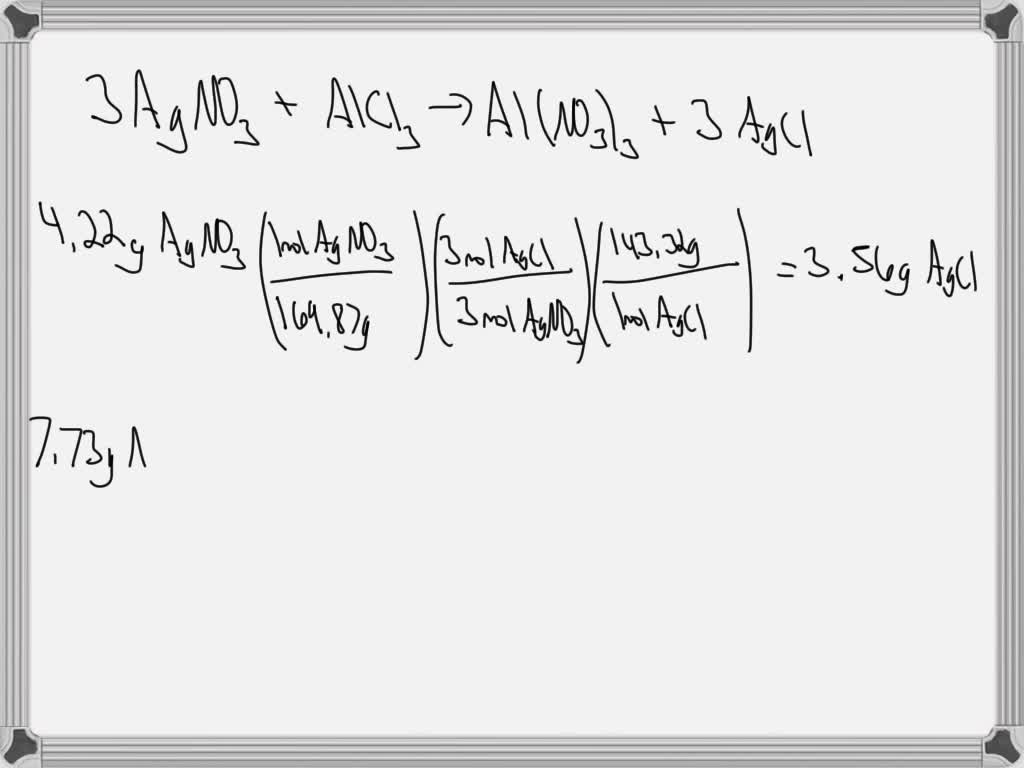 3AgNO₃ + AlCl₃ → Al(NO₃)₃ + 3 AgCl
4.22g AgNO₃ (1mol AgNO₃ / 169.87g) (3mol AgCl / 3mol AgNO₃) (143.32g / 1mol AgCl) = 3.56g AgCl
7.73g A